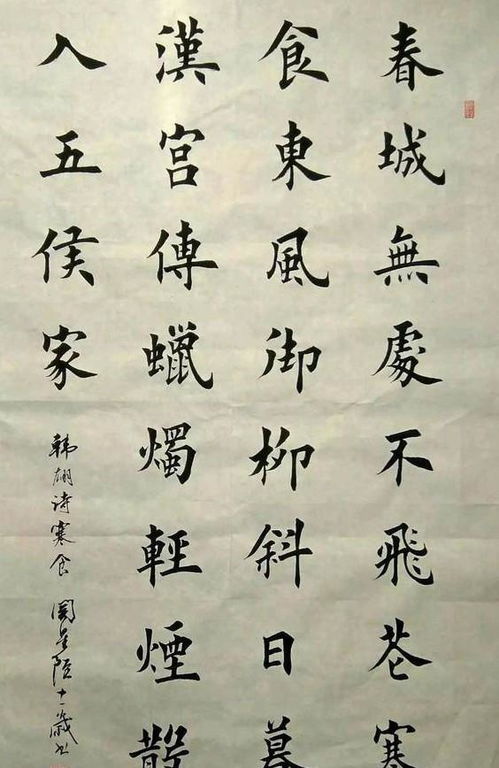 春城無處不飛花寒
食東風御柳斜日暮
漢宮傳蠟燭輕煙散
入五侯家
韩翃诗寒食 十一歲书